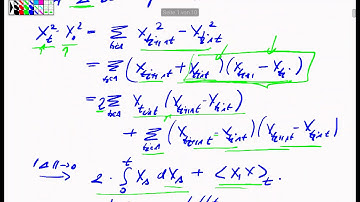 X_t² - X_0² = Σ_{t_i∈Δ} X²_{t_{i+1}∧t} - X²_{t_i∧t}
= Σ_{t_i∈Δ} (X_{t_{i+1}∧t} + X_{t_i∧t})(X_{t_{i+1}} - X_{t_i})
= 2 Σ_{t_i∈Δ} X_{t_i∧t} (X_{t_{i+1}∧t} - X_{t_i∧t})
+ Σ_{t_i∈Δ} (X_{t_{i+1}∧t} - X_{t_i∧t})(X_{t_{i+1}∧t} - X_{t_i∧t})
|Δ|→0 → 2 · ∫_0^t X_s dX_s + <X,X>_t.